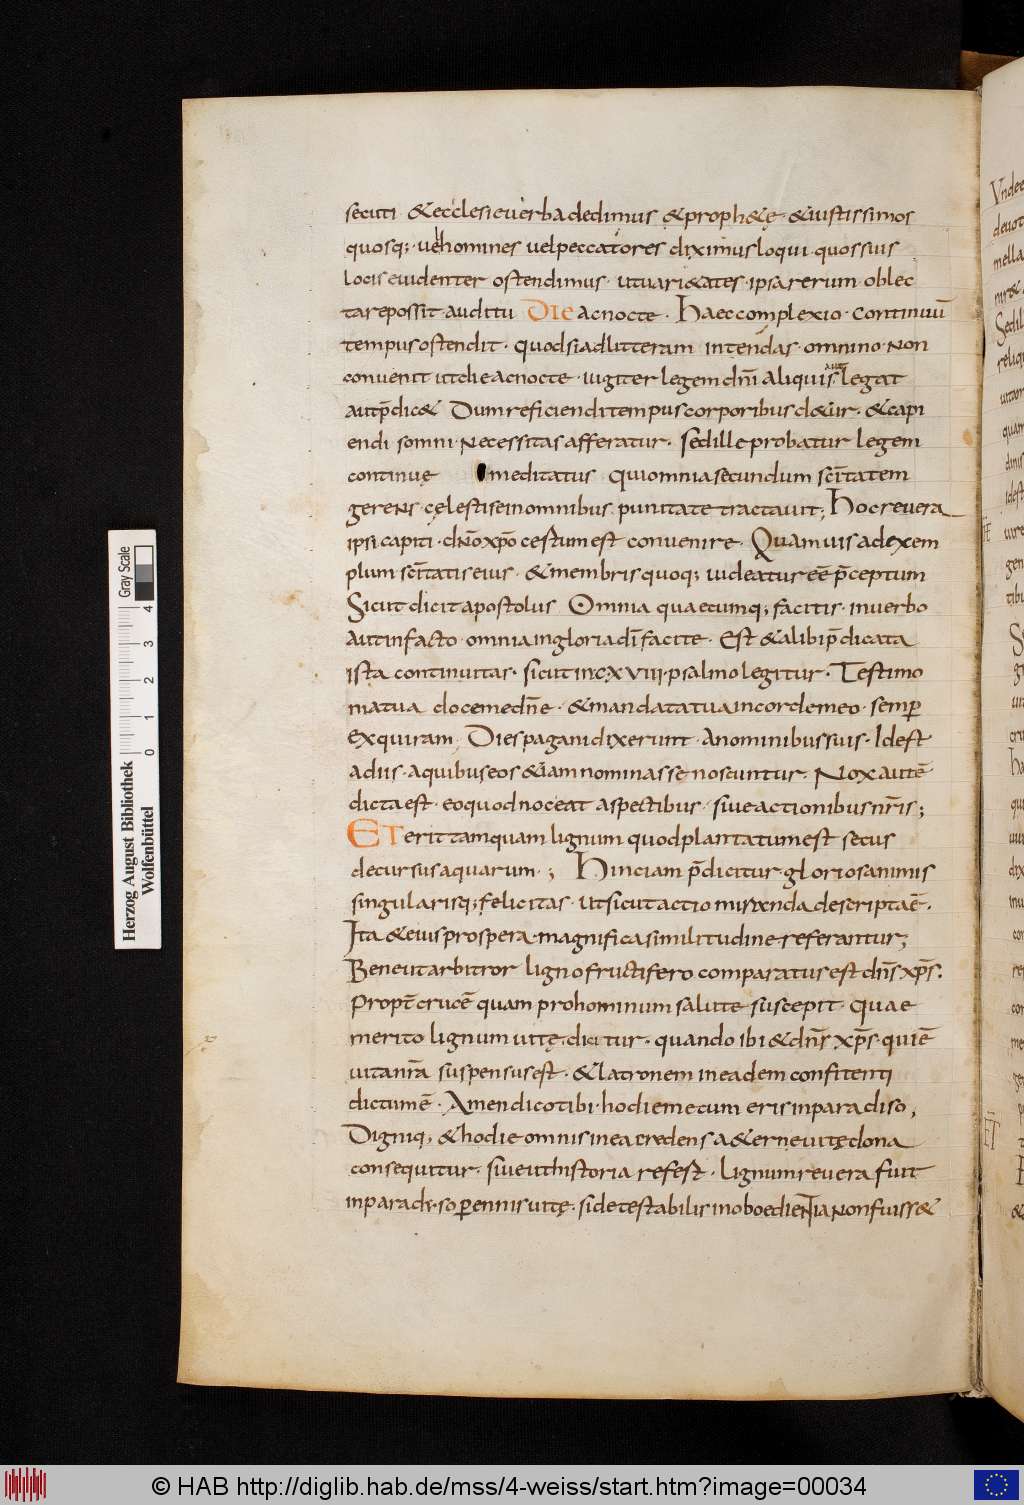 secuti · & ecclesie uerba dedimus & proph&ę · & iustissimos
quosq; · uel homines uel peccatores diximus loqui · quos suis
locis euidenter ostendimus · ut uari&ates · ipsa rerum · oblec
tare possit auditu DIE ac nocte · Haec complexio · continuū
tempus ostendit · quod si ad litteram intendas · omnino · Non
conuenit ut die ac nocte · iugiter legem dn̄i aliquis legat
aut p̄dic& Dum reficiendi tempus corporibus d&ur · & capi
endi somni · Necessitas afferatur · sed ille probatur legem
continuę meditatus qui omnia secundum sc̄itatem
gerens · cęlestis e in omnibus puritate tractauit; Hoc reuera
ipsi capiti · dn̄o xp̄o cestum est conuenire · Quamuis ad exem
plum sc̄itatis eius · & membris quoq; uideatur eē p̄ceptum
Sicut dicit apostolus Omnia quaecumq; facitis · in uerbo
aut in facto · omnia in gloria dī facite · Est & alibi p̄dicata
ista continuitas · sicut in cxviii · psalmo legitur · Testimo
nia tua doce me dn̄e · & mandata tua in corde meo · semp̄
exquiram · Dies pagani dixerunt · a nominibus suis · Idest
a diis · a quibus eos & iam nominasse noscuntur · Nox autē
dicta est · eo quod noceat aspectibus · siue actionibus nr̄is;
ET erit tamquam lignum quod plantatum est secus
decursus aquarum · ; Hinc iam p̄dicitur gloriosa nimis
singularisq; felicitas · ut sicut actio miranda descripta ē ·
Ita & eius prospera · magnifica similitudine referantur;
Bene ut arbitror ligno fructifero comparatus est dn̄s xp̄s ·
Propt̄ crucē quam pro hominum salute suscepit · Quae
merito lignum uitę · dicitur · quando ibi & dn̄s xp̄s · qui ē
uita nr̄a suspensus est · & latroni in eadem confitenti
dictum ē · Amen dico tibi · hodie mecum eris in paradiso,
Digniq; & hodie omnis in ea credens a&erne uitę dona
consequitur · siue ut historia refest · Lignum reuera fuit
in paradiso perennis uitę · side testabilis inoboedientia Non fuiss&
© HAB http://diglib.hab.de/mss/4-weiss/start.htm?image=00034
Herzog August Bibliothek
Wolfenbüttel
0 1 2 3 4
Gray Scale